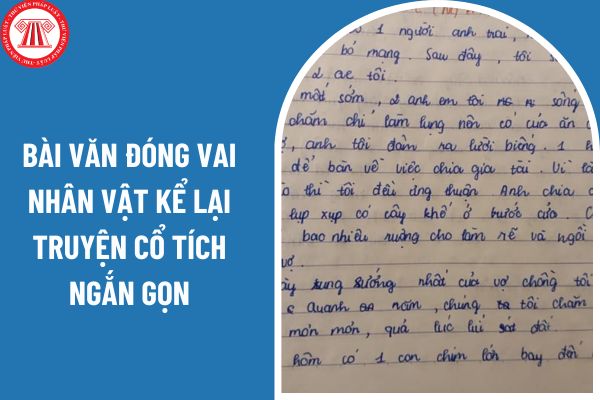 THƯ VIỆN PHÁP LUẬT
BÀI VĂN ĐÓNG VAI
NHÂN VẬT KỂ LẠI
TRUYỆN CỔ TÍCH
NGẮN GỌN
1 người anh trai,
bỏ mạng. Sau đây, tôi
2 ae tôi.
mất sớm, 2 anh em tôi sống
chăm chỉ làm lụng nên có của ăn
anh tôi đâm ra lười biếng. 1
để bàn về việc chia gia tài. Vì là
thì tôi đều ưng thuận. Anh chia
lụp xụp có cây khế ở trước cửa. C
bao nhiêu ruộng cho làm rẽ và ngồi
vợ.
sung sướng nhất của vợ chồng tôi
Quanh năm, chúng tôi chăm
mơn mởn, quả lúc lỉu sát đất
hôm có 1 con chim lớn bay đến